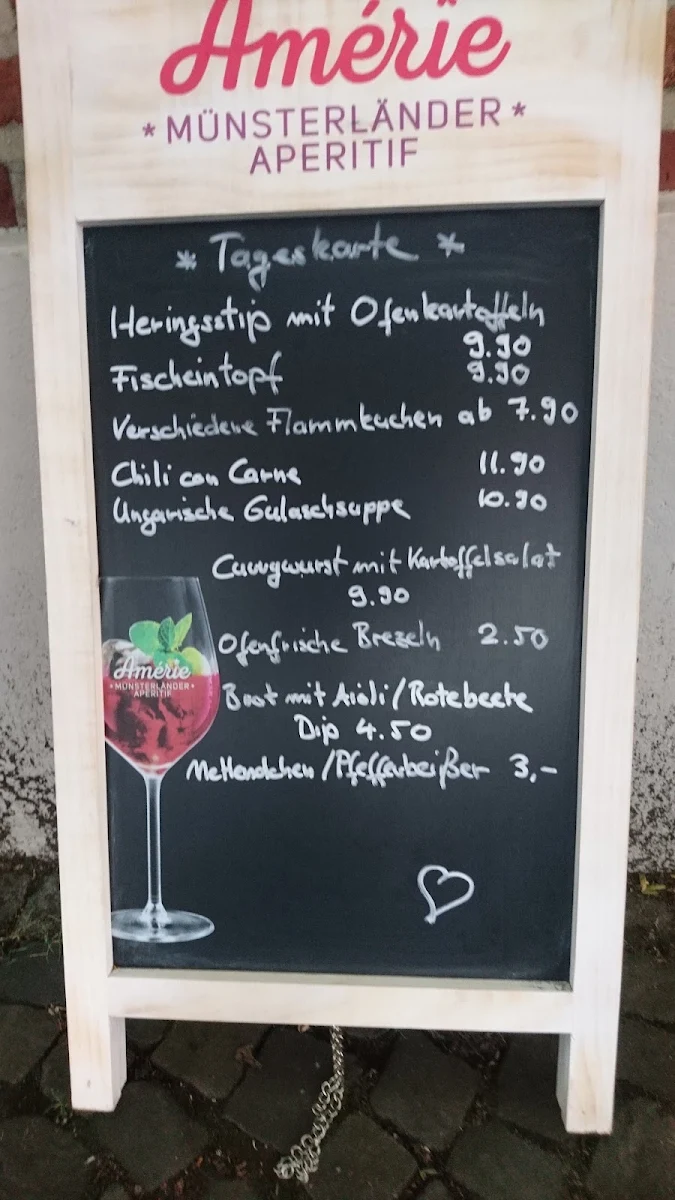 Amérie
* MÜNSTERLÄNDER *
APERITIF
* Tageskarte *
Heringsstip mit Ofenkartoffeln
9.90
Fischeintopf 9.90
Verschiedene Flammkuchen ab 7.90
Chili con Carne 11.90
Ungarische Gulaschsuppe 10.90
Currywurst mit Kartoffelsalat
9.90
Ofenfrische Brezeln 2.50
Amérie
* MÜNSTERLÄNDER *
APERITIF
Brot mit Aioli/Rotebeete
Dip 4.50
Mettendchen/Pfefferbeißer 3,-